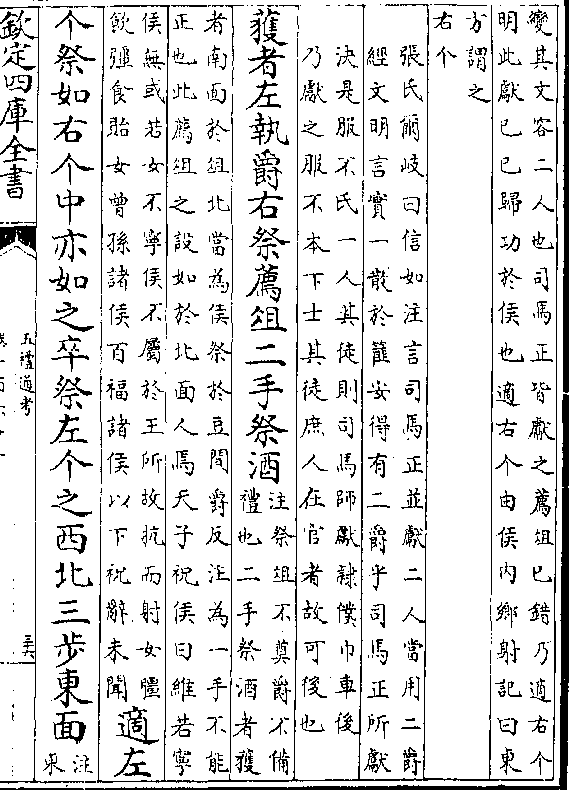 變其文容二人也司馬正皆獻之薦俎已錯乃適右个
明此獻已已歸功於侯也適右个由侯內鄉射記曰東
方謂之
右个
張氏爾岐曰信如注言司馬正並獻二人當用二爵
經文明言實一散於篚安得有二爵乎司馬正所獻
決是服不氏一人其徒則司馬師獻隸僕巾車後
乃獻之服不本下士其徒庶人在官者故可後也
獲者左執爵右祭薦俎二手祭酒
注祭俎不奠爵不備
禮也二手祭酒者獲
者南面於俎北當為侯祭於豆間爵反注為一手不能
正也此薦俎之設如於北面人焉天子祝侯曰維若寧
侯無或若女不寧侯不屬於王所故抗而射女彊
飲彊食貽女曾孫諸侯百福諸侯以下祝辭未聞
適左
个祭如右个中亦如之卒祭左个之西北三步東面
注
東
欽定四庫全書
五禮通考